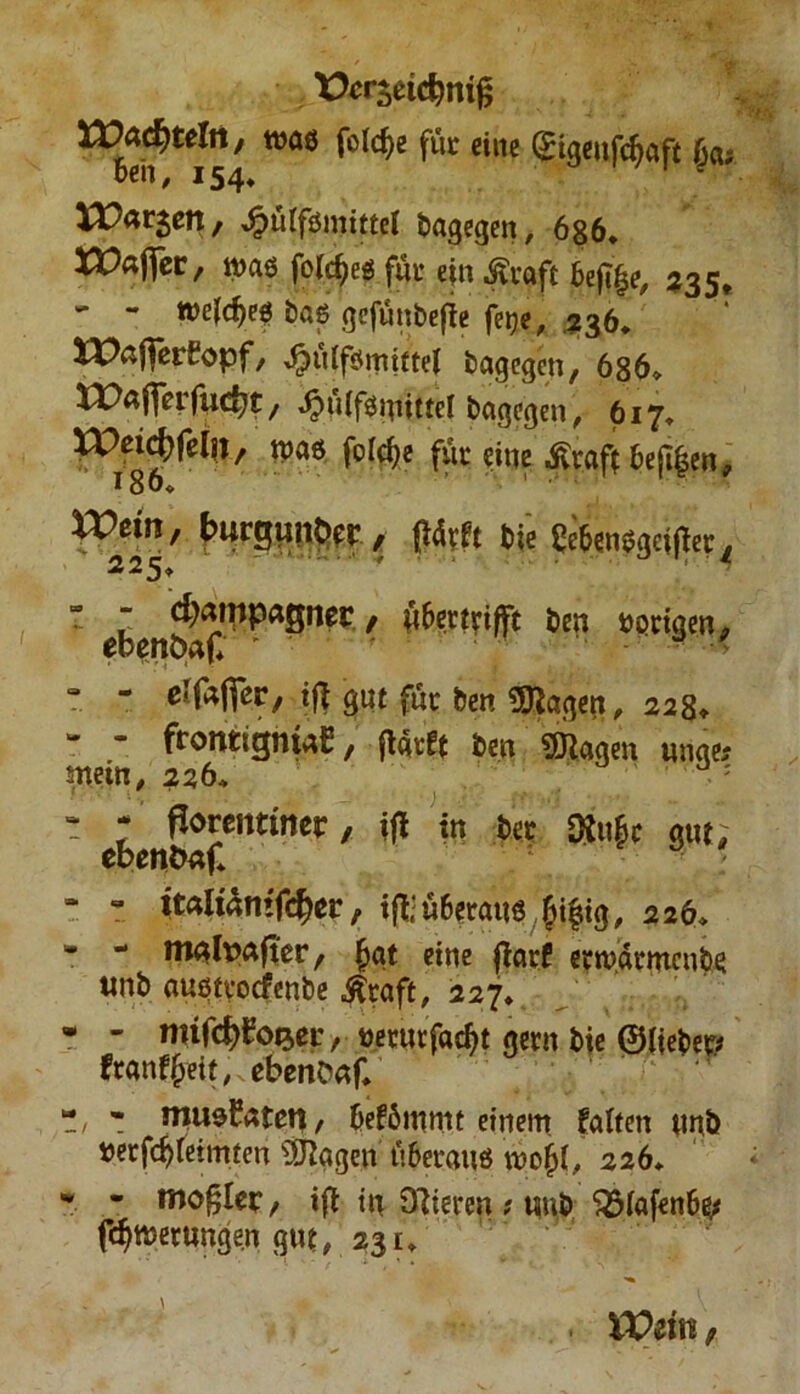 Verzeichniß
Wachteln, was solche für eine Eigenschaft ha-
ben, 154.
Warzen, Hülfsmittel dagegen, 686.
Wasser, was solches für ein Kraft besitze, 235.
- - welches das gesündeste seye, 236.
Wasserkopf, Hülfsmittel dagegen, 686.
Wassersucht, Hülfsmittel dagegen, 617.
Weichseln, was solche für eine Kraft besitzen,
186.
Wein, burgunder, stärkt die Lebensgeister,
225.
- - champagner, übertrifft den vorigen,
ebendas.
- - elsasser, ist gut für den Magen, 228.
- - frontigniak, stärkt den Magen unge-
mein, 226.
- - florentiner, ist in der Ruhr gut,
ebendas.
- - italiänischer, ist überaus hitzig, 226.
- - malvasier, hat eine stark erwärmende
und austrockende Kraft, 227.
- - mischkotzer, verursacht gern die Glieder-
krankheit, ebendas.
- - muskaten, bekömmt einem kalten und
verschleimten Magen überaus wohl, 226.
- - moßler, ist in Nieren- und Blasenbe-
schwerungen gut, 231.
Wein,